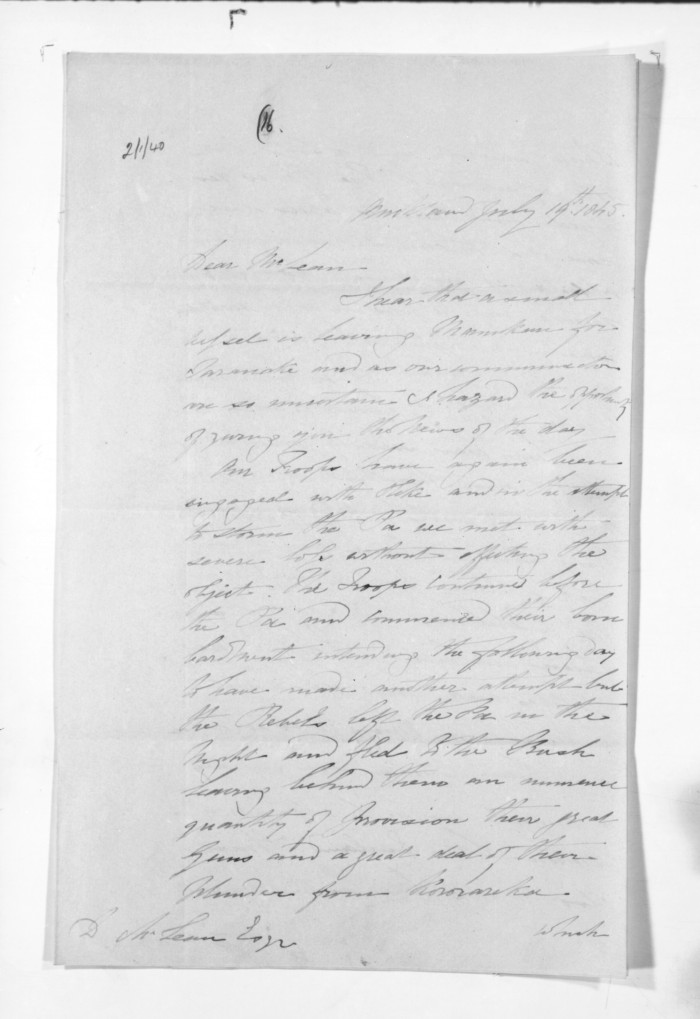 16.
2/1/40
Auckland July 19th 1845.
Dear McLean
I hear that a small
vessel is leaving Manukau for
Taranaki and as our communication
are so uncertain I hazard the opportunity
of giving you the News of the day
Our Troops have again been
engaged with Heke and in the attempt
to storm the Pa we met with
severe loss without effecting the
object. The Troops continued before
the Pa and commenced their bom
bardment intending the following day
to have made another attempt but
the Rebels left the Pa in the
Night and fled to the Bush
leaving behind them an immense
quantity of Provision their great
Guns and a great deal of their
Plunder from Kororareka
D McLean Esqr
Which